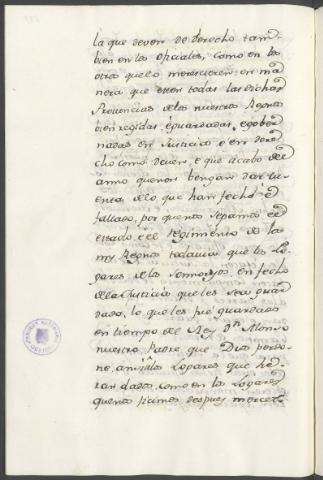 la que deven de derecho tam-
bien en los oficiales, como en los
otros que lo merescieren: en ma
nera que esten todas las dichas
Provincias de los nuestros Regnos
bien regidas, é guardadas, é gober
nadas en Justicia é en dere
cho como deven, é que acabo del
anno quenos bengan dar cu
enta de lo que han fecho é
fallado, por que nos sepamos el
estado, é el regimiento de los
Regnos todavia que los Lo
gares de los sennoryos, en fecho
de la Justicia que les sea guar
dado, lo que les fué guardado
en tiempo del Rey Dn. Alonso
nuestro Padre que Dios perdo-
ne, an los Logares que
dados, como en los Logares
quenos ficimos despues merced